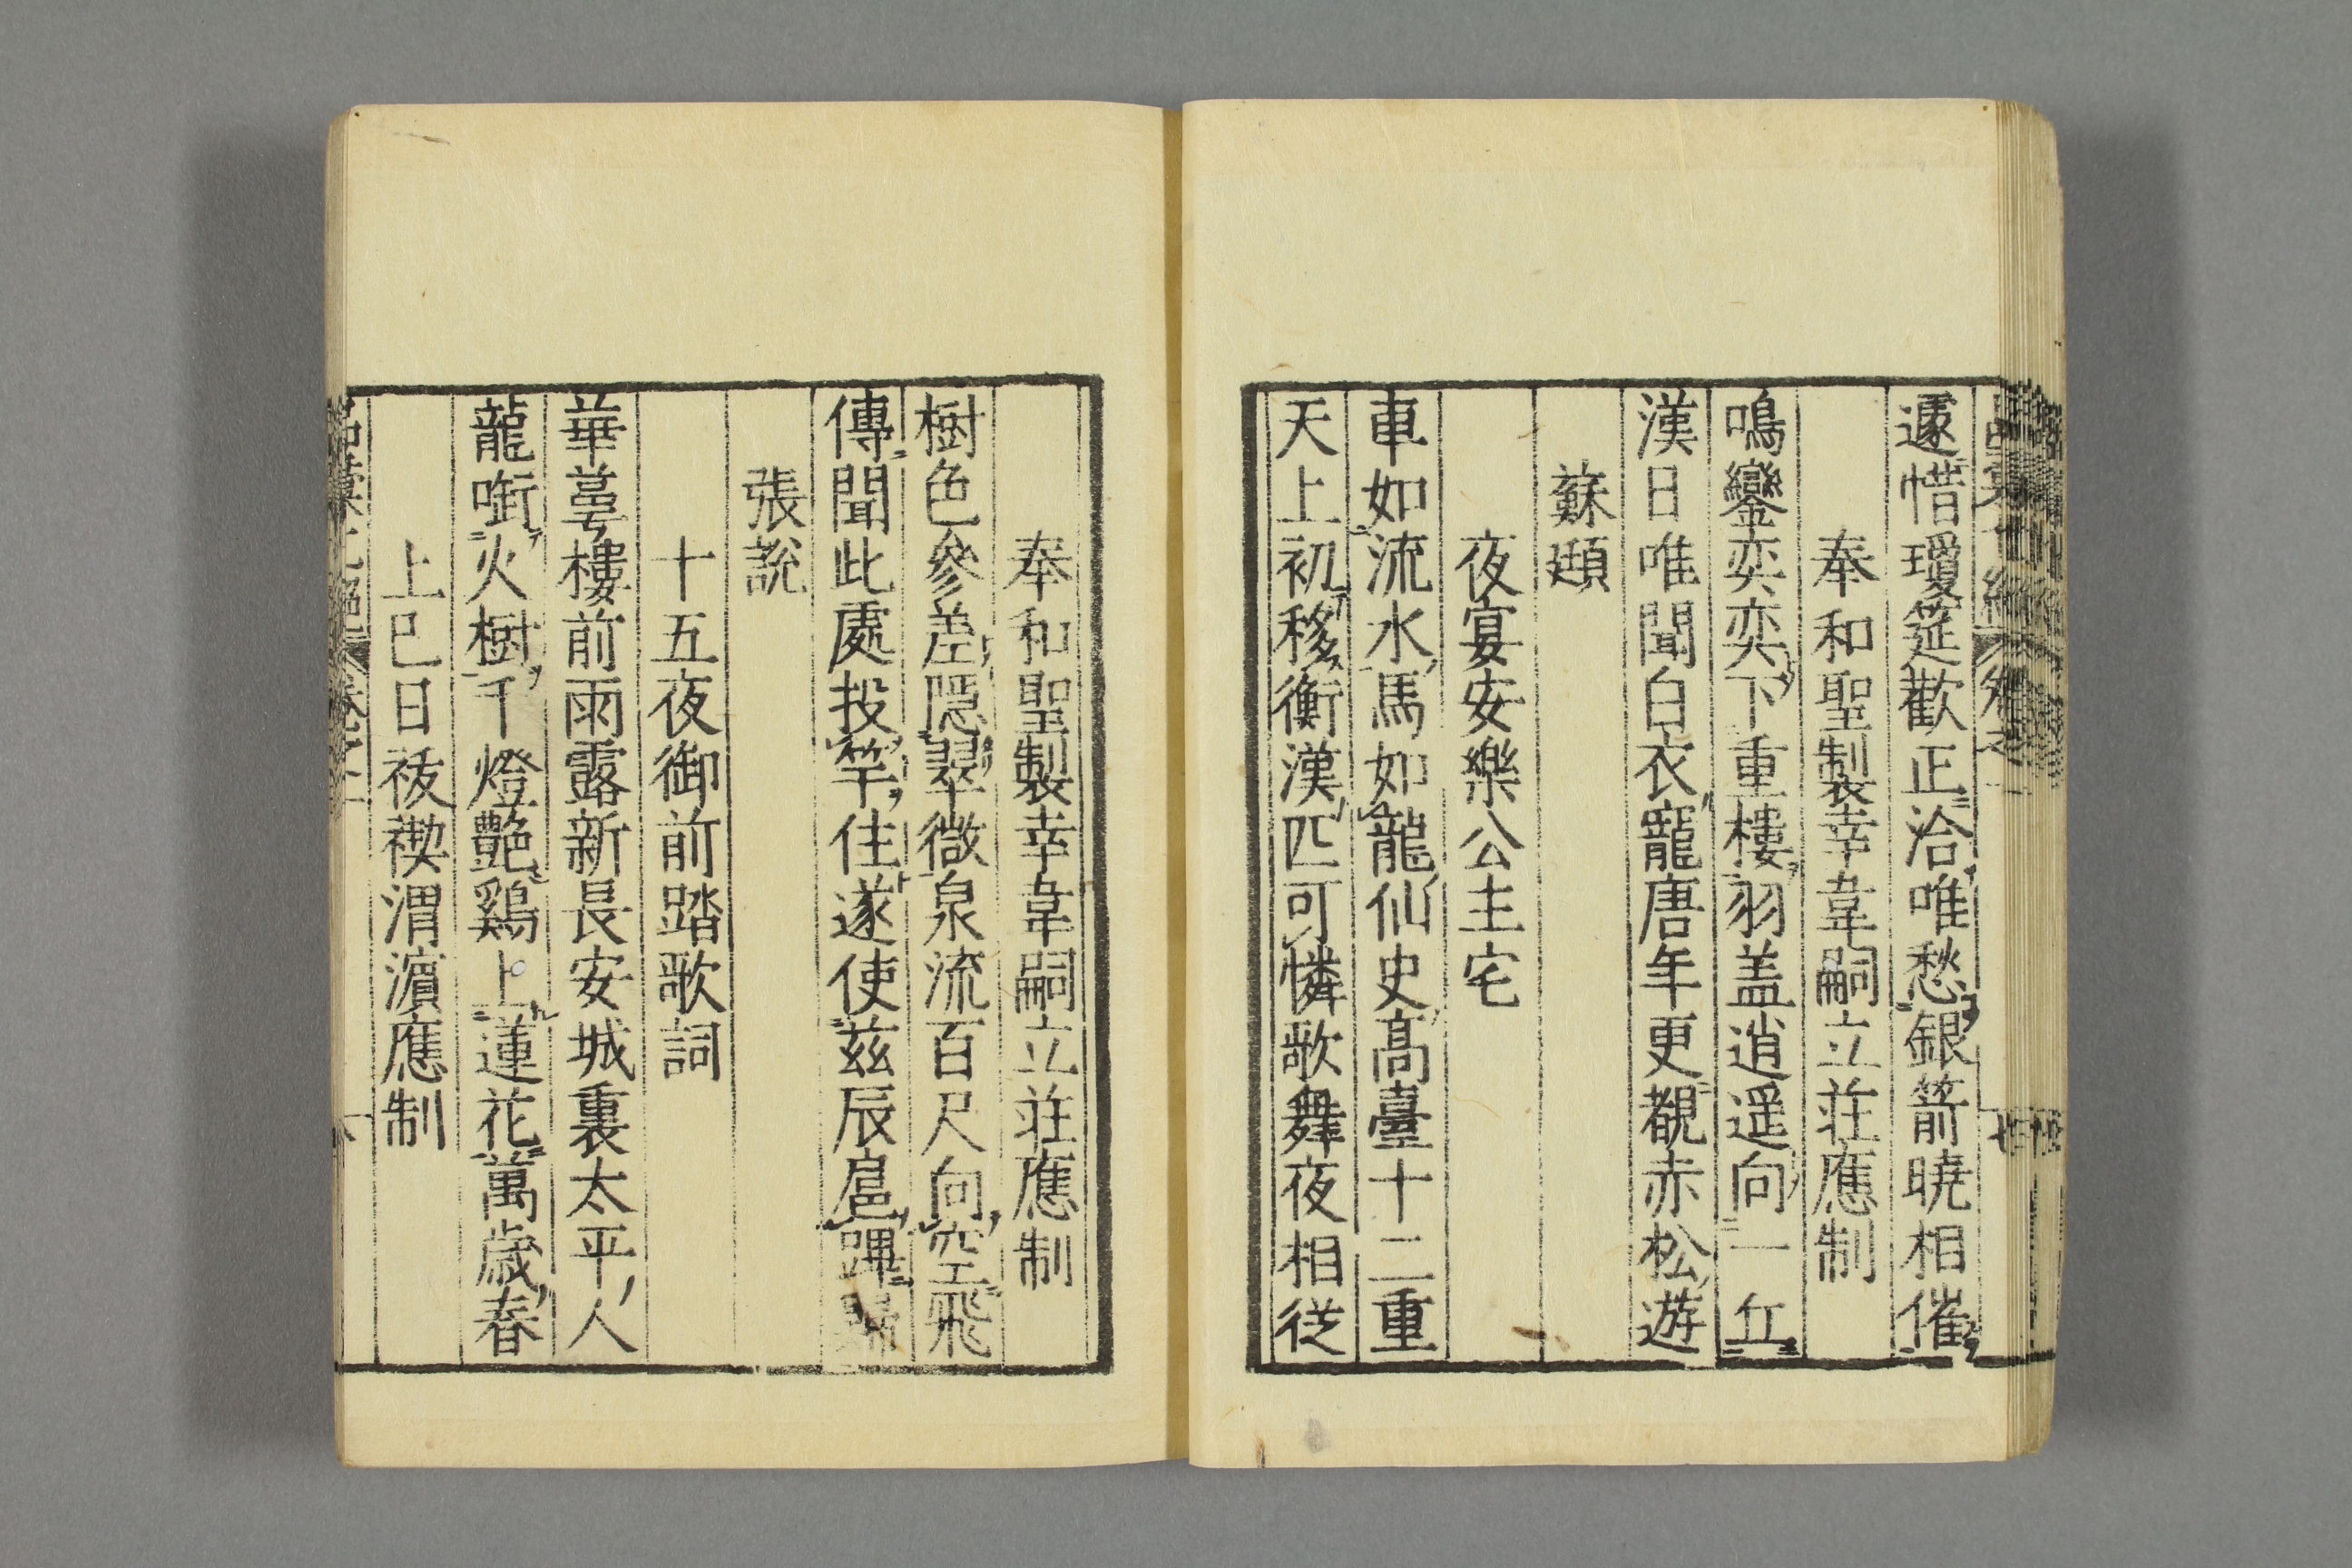 遽惜瓊筵歡正洽唯愁銀箭曉相催
奉和聖製幸韋嗣立莊應制
鳴鑾奕奕下重樓羽盖逍遥向一丘
漢日唯聞白衣寵唐年更覩赤松遊
蘇頲
夜宴安樂公主宅
車如流水馬如龍仙史髙臺十二重
天上初移衡漢匹可憐歌舞夜相從
奉和聖製幸韋嗣立莊應制
樹色參差隱翠微泉流百尺向空飛
傳聞此處投竿住遂使茲辰扈蹕歸
張說
十五夜御前踏歌詞
華萼樓前雨露新長安城裏太平人
龍銜火樹千燈艷鷄上蓮花萬歳春
上巳日祓禊渭濵應制